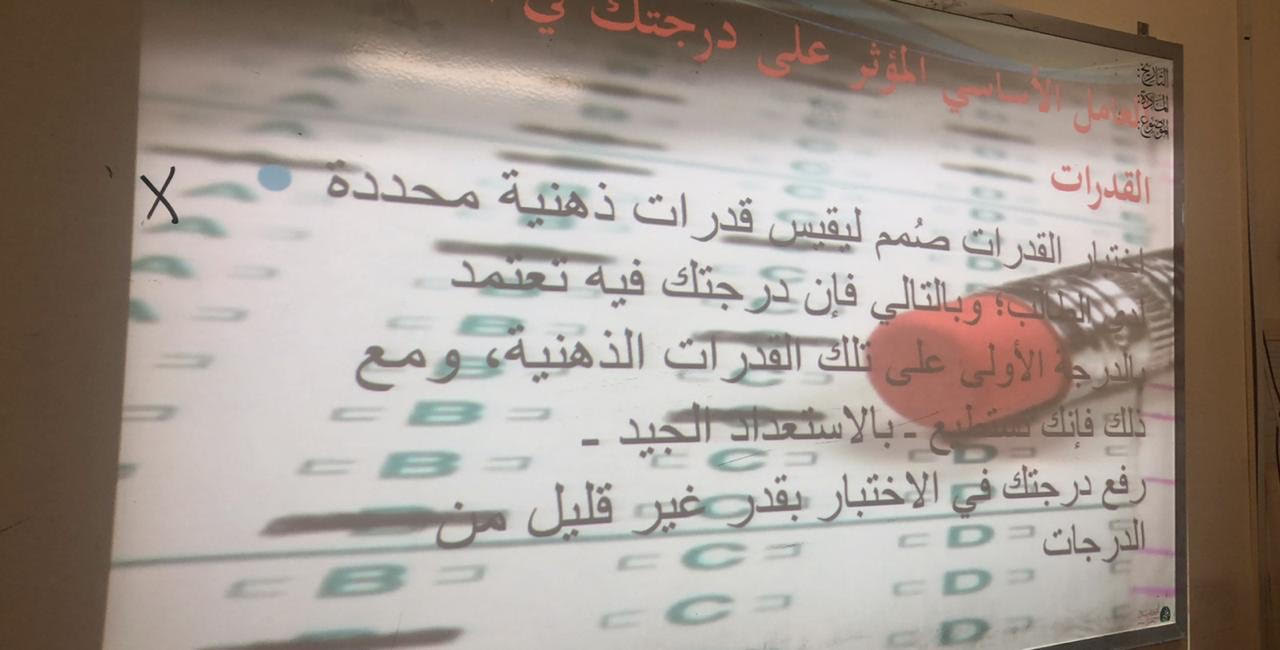 العامل الأساسي المؤثر على درجتك في
القدرات
التاريخ:
المادة:
الموضوع:
X
اختبار القدرات صُمم ليقيس قدرات ذهنية محددة
لدى الطالب؛ وبالتالي فإن درجتك فيه تعتمد
بالدرجة الأولى على تلك القدرات الذهنية، ومع
ذلك فإنك تستطيع - بالاستعداد الجيد -
رفع درجتك في الاختبار بقدر غير قليل من
الدرجات
B
B
C
D
B
C
D
B
C
D
C
D
D